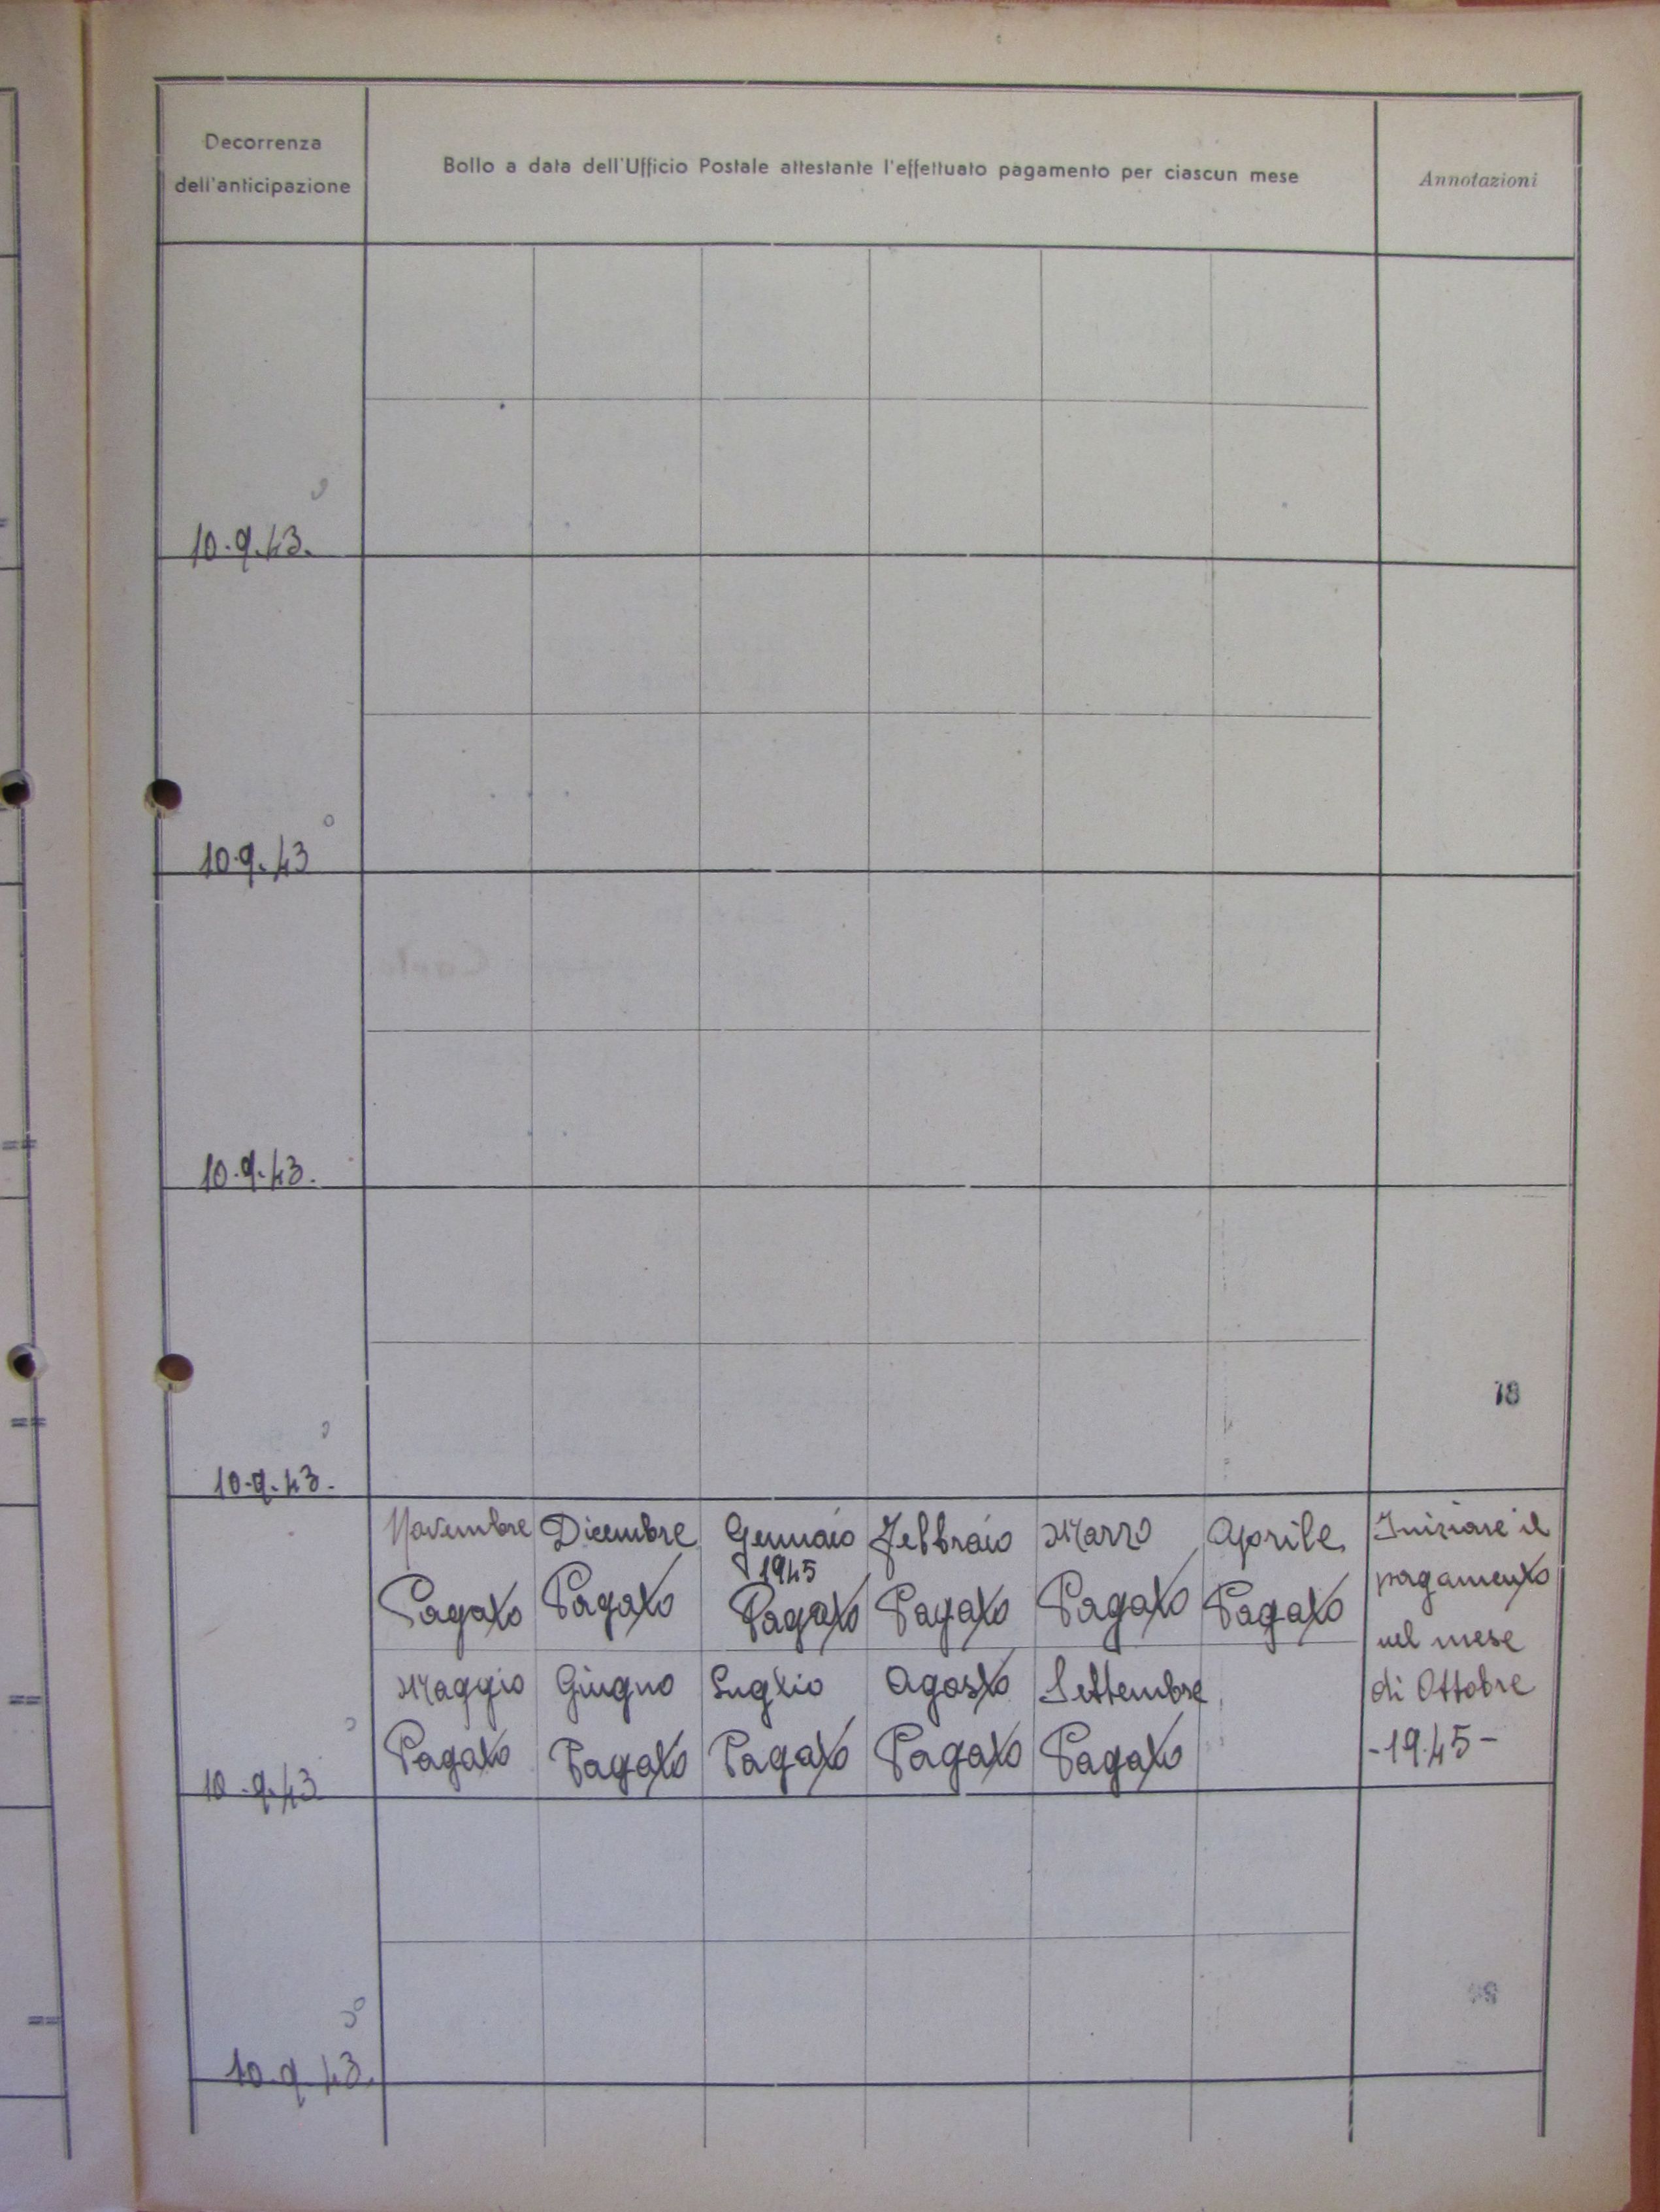 Decorrenza
dell'anticipazione
Bollo a data dell'Ufficio Postale attestante l'effettuato pagamento per ciascun mese
Annotazioni
10.9.43.
10.9.43
10.9.43.
18
10.9.43.
Novembre Dicembre Gennaio Febbraio Marzo Aprile
1945
Pagato Pagato Pagato Pagato Pagato Pagato
Maggio Giugno Luglio Agosto Settembre
Pagato Pagato Pagato Pagato Pagato
Iniziare il
pagamento
nel mese
di Ottobre
-1945-
10.9.43
10.9.43.